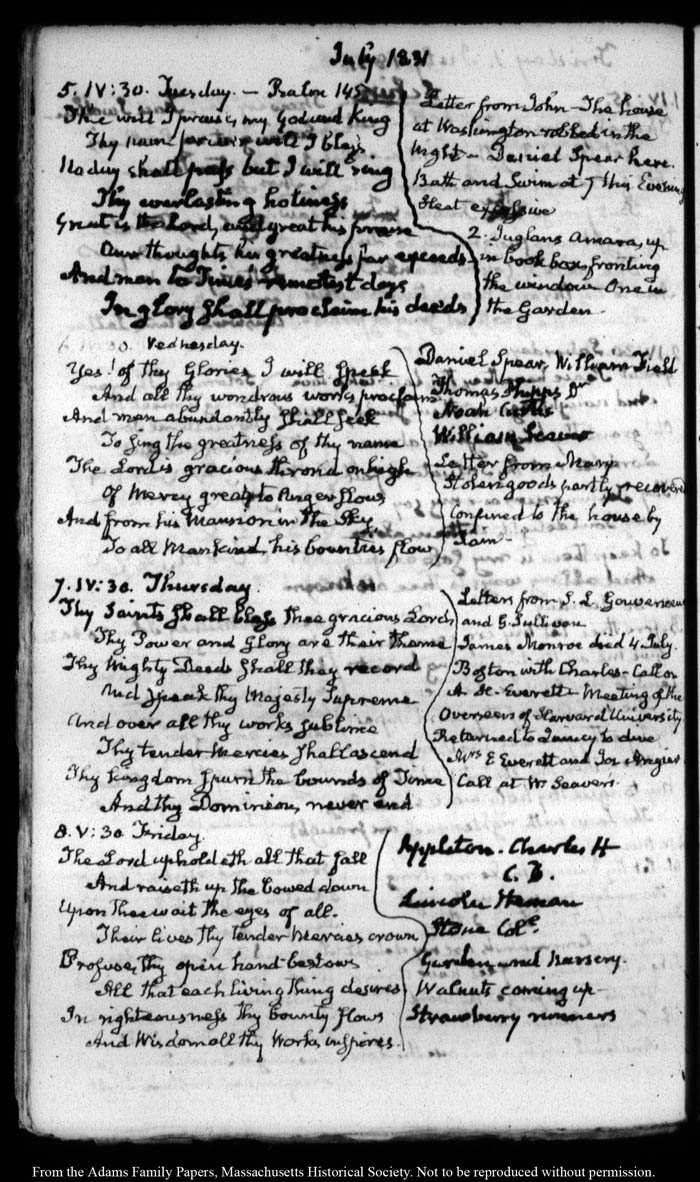 July 1831
5. IV:30. Tuesday. — Psalm 145.
Thee will I praise, my God and King
Thy name forever will I bless
No day shall pass but I will sing
Thy everlasting holiness
Great is the Lord, and great his praise
Our thoughts his greatness far exceeds
And man to Times' remotest days
In glory shall proclaim his deeds
Letter from John — The house
at Washington robbed in the
Night — Daniel Spear here.
Bath and Swim at 7 this Evening
Heat
2. Juglans Amara, up
in book box, fronting
the window One in
the Garden.
Wednesday.
Yes! of thy Glories I will speak
And all thy wondrous works proclaim
And men abundantly shall seek
To sing the greatness of thy name
The Lord is gracious throned on high
Of Mercy great, to Anger slow,
And from his Mansion in the Sky
To all Mankind, his bounties flow
Daniel Spear, William Field
Thomas Phipps Jr
Noah Curtis
William Seaver
Letter from Mary
Stolen goods partly recovered
Confined to the house by
rain —
7. IV:30. Thursday.
Thy Saints shall bless thee gracious Lord
Thy Power and Glory are their theme
Thy Mighty Deeds shall they record
And speak thy Majesty Supreme
And over all thy works sublime
Thy tender Mercies shall ascend
Thy kingdom spurn the bounds of Time
And thy Dominion, never end
Letters from S. L. Gouverneur
and G. Sullivan
James Monroe died 4 July.
Boston with Charles — Call on
A. H. Everett — Meeting of the
Overseers of Harvard University
Returned to Quincy to dine
Mrs E Everett and Jos Angier
Call at Wm Seaver's.
8. V:30 Friday.
The Lord upholdeth all that fall
And raiseth up the bowed down
Upon Thee wait the eyes of all.
Their lives thy tender Mercies crown
Profuse, thy open hand bestows
All that each living thing desires
In righteousness thy bounty flows
And Wisdom all thy Works inspires.
Appleton. Charles H
Lincoln Heman
Stone Col.
Garden and Nursery.
Walnuts coming up —
Strawberry runners
From the Adams Family Papers, Massachusetts Historical Society. Not to be reproduced without permission.